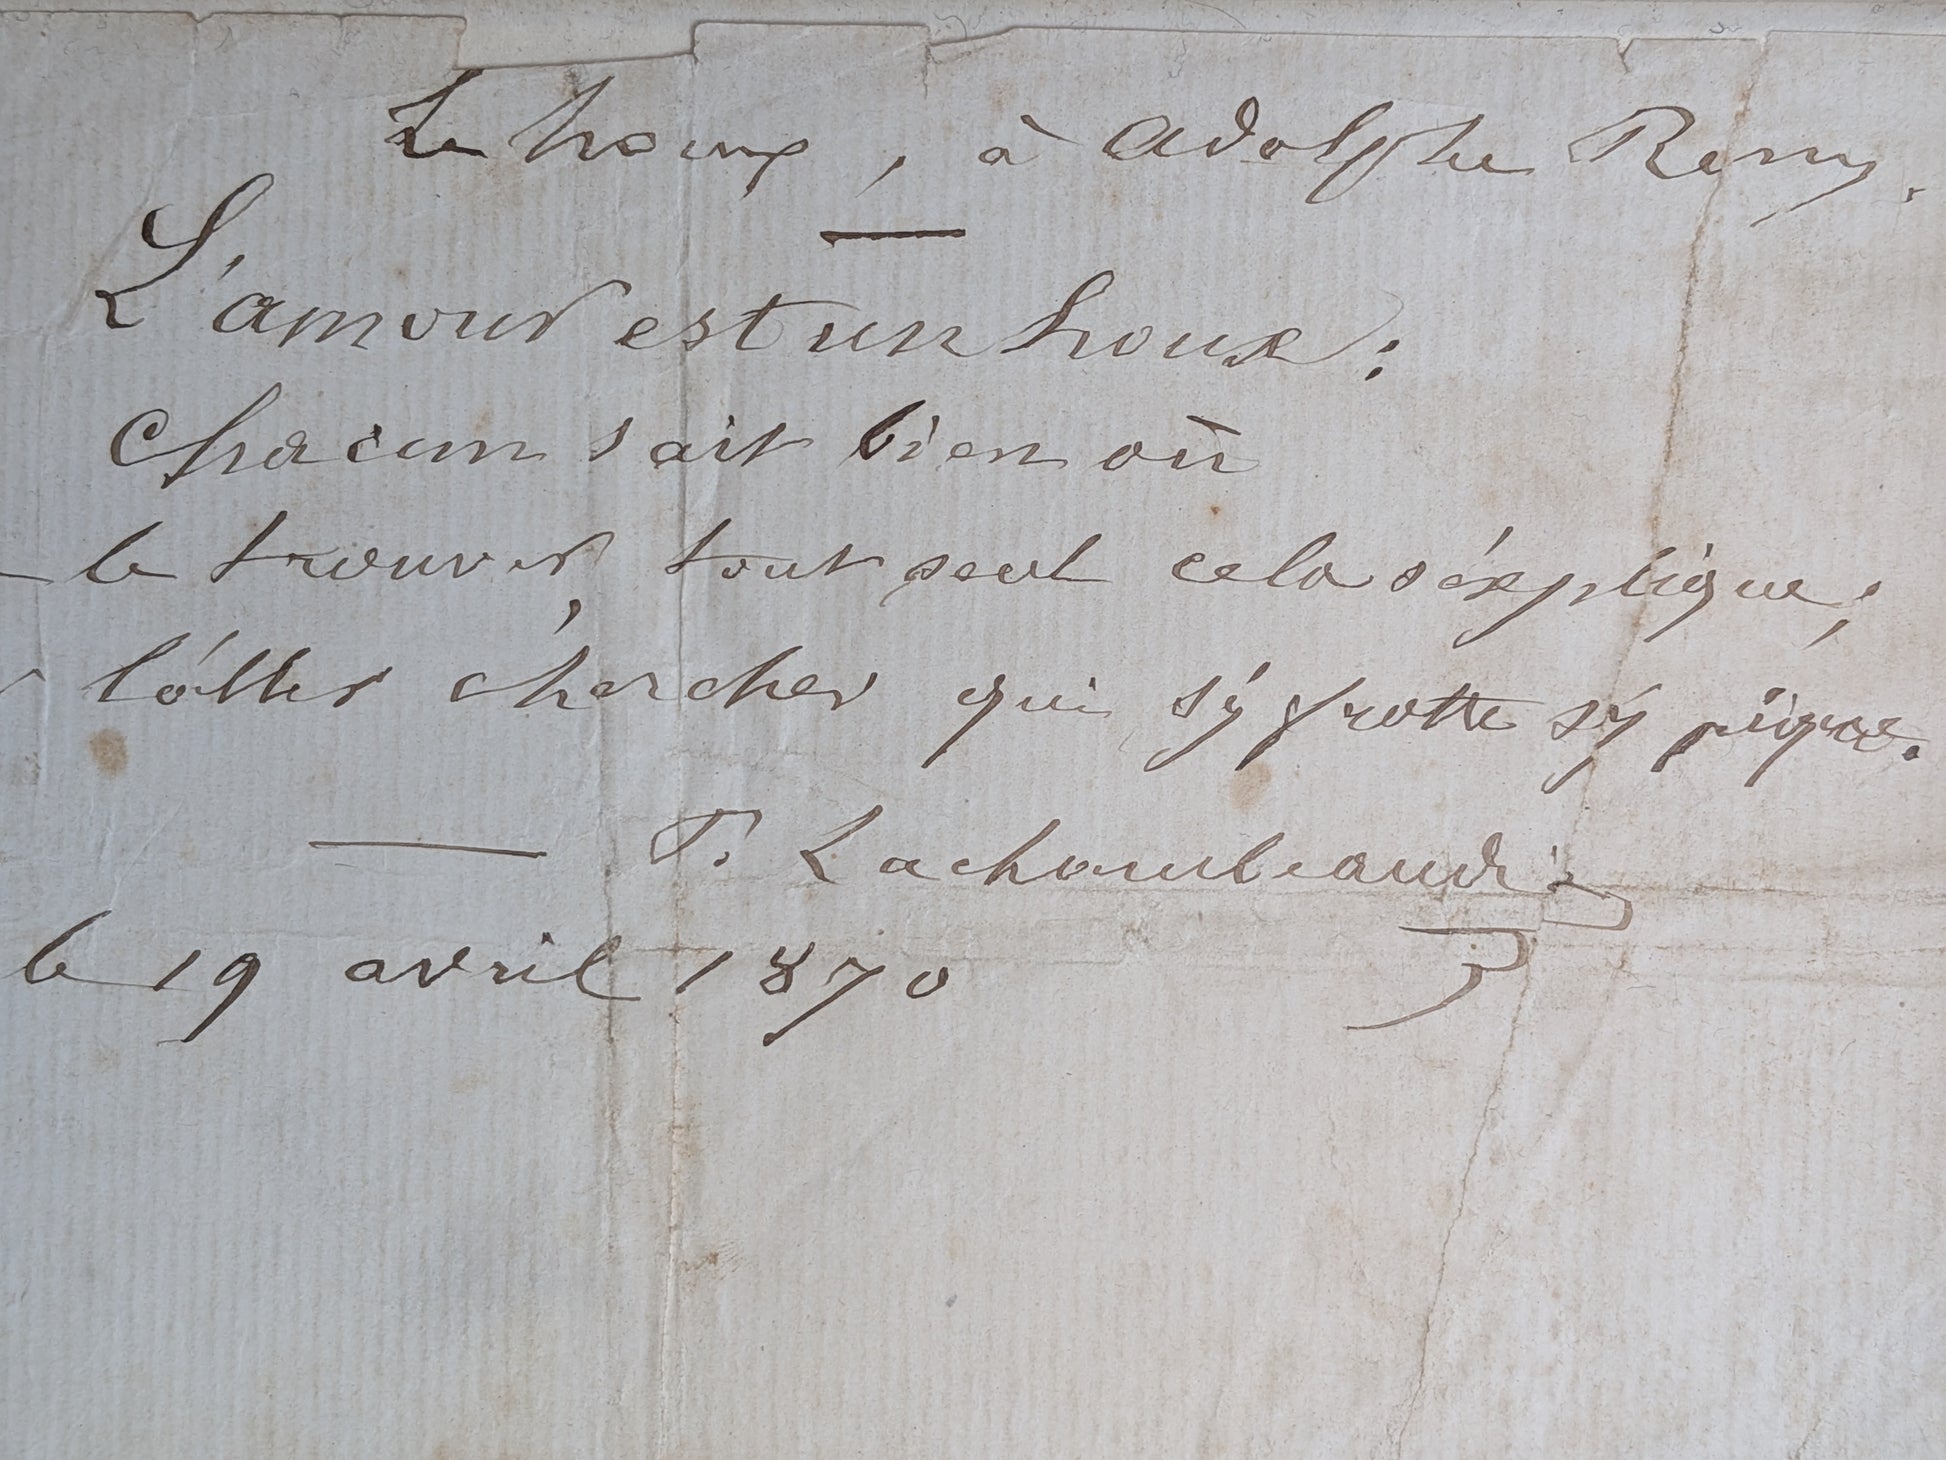 Le houx, à Adolphe Remy.
L'amour est un houx:
chacun sait bien où
le trouver, tout seul cela s'explique;
l'aller chercher qui s'y frotte s'y pique.
P. Lachambeaudie
le 19 avril 1870